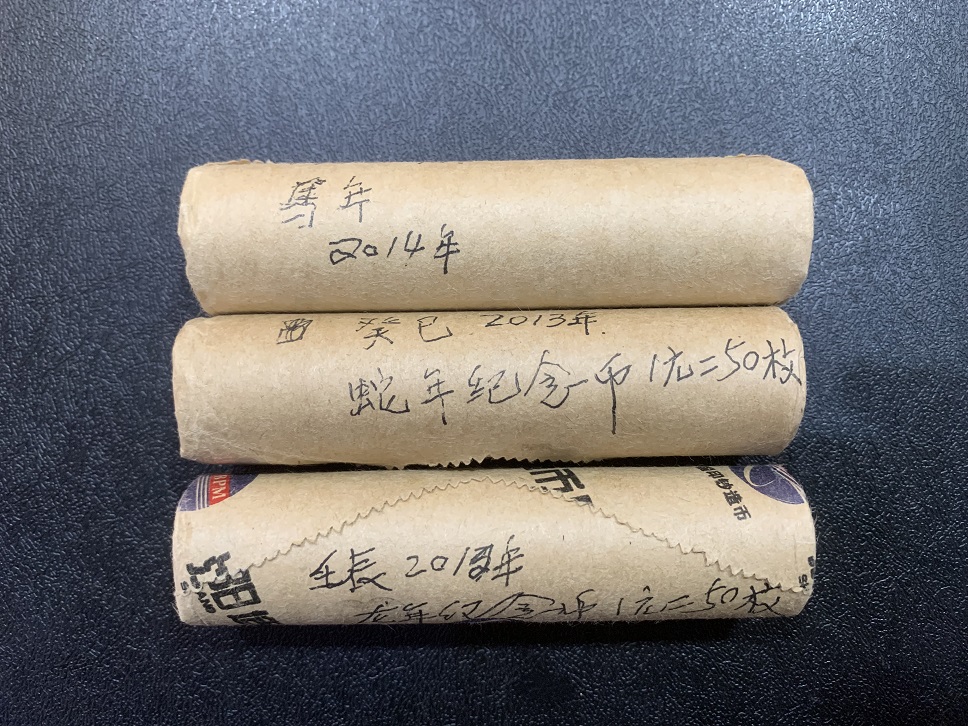 馬年
2014年
酉 癸巳 2013年.
蛇年纪念币1元=50枚
币
印钞造币
BPM
壬辰 2012年
龙年纪念币1元=50枚